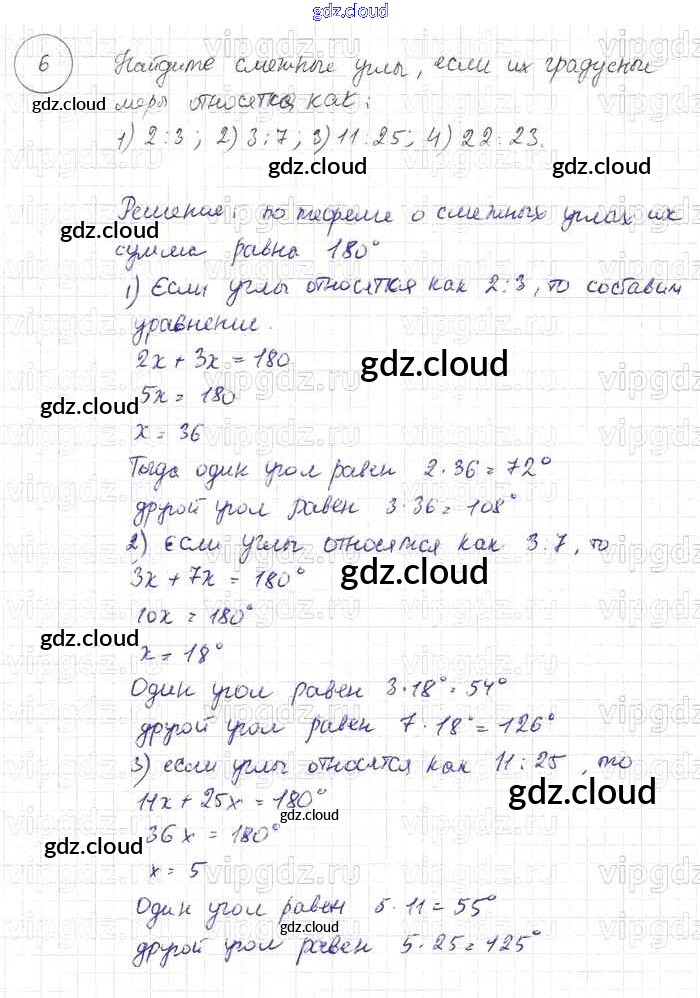 gdz.cloud
6 Найдите смежные углы, если их градусные
gdz.cloud меры относятся как:
1) 2:3; 2) 3:7; 3) 11:25; 4) 22:23.
gdz.cloud gdz.cloud
Решение: по теореме о смежных углах их
gdz.cloud
сумма равна 180°
1) Если углы относятся как 2:3, то составим
уравнение.
2x + 3x = 180
gdz.cloud
5x = 180
gdz.cloud
x = 36
Тогда один угол равен 2·36=72°
другой угол равен 3·36=108°
2) если углы относятся как 3:7, то
3x + 7x = 180°
gdz.cloud
10x = 180°
gdz.cloud
x = 18°
Один угол равен 3·18°=54°
другой угол равен 7·18°=126°
3) если углы относятся как 11:25, то
11x + 25x = 180°
gdz.cloud
gdz.cloud
36x = 180°
gdz.cloud
x = 5
Один угол равен 5·11=55°
gdz.cloud
другой угол равен 5·25=125°
gdz.cloud